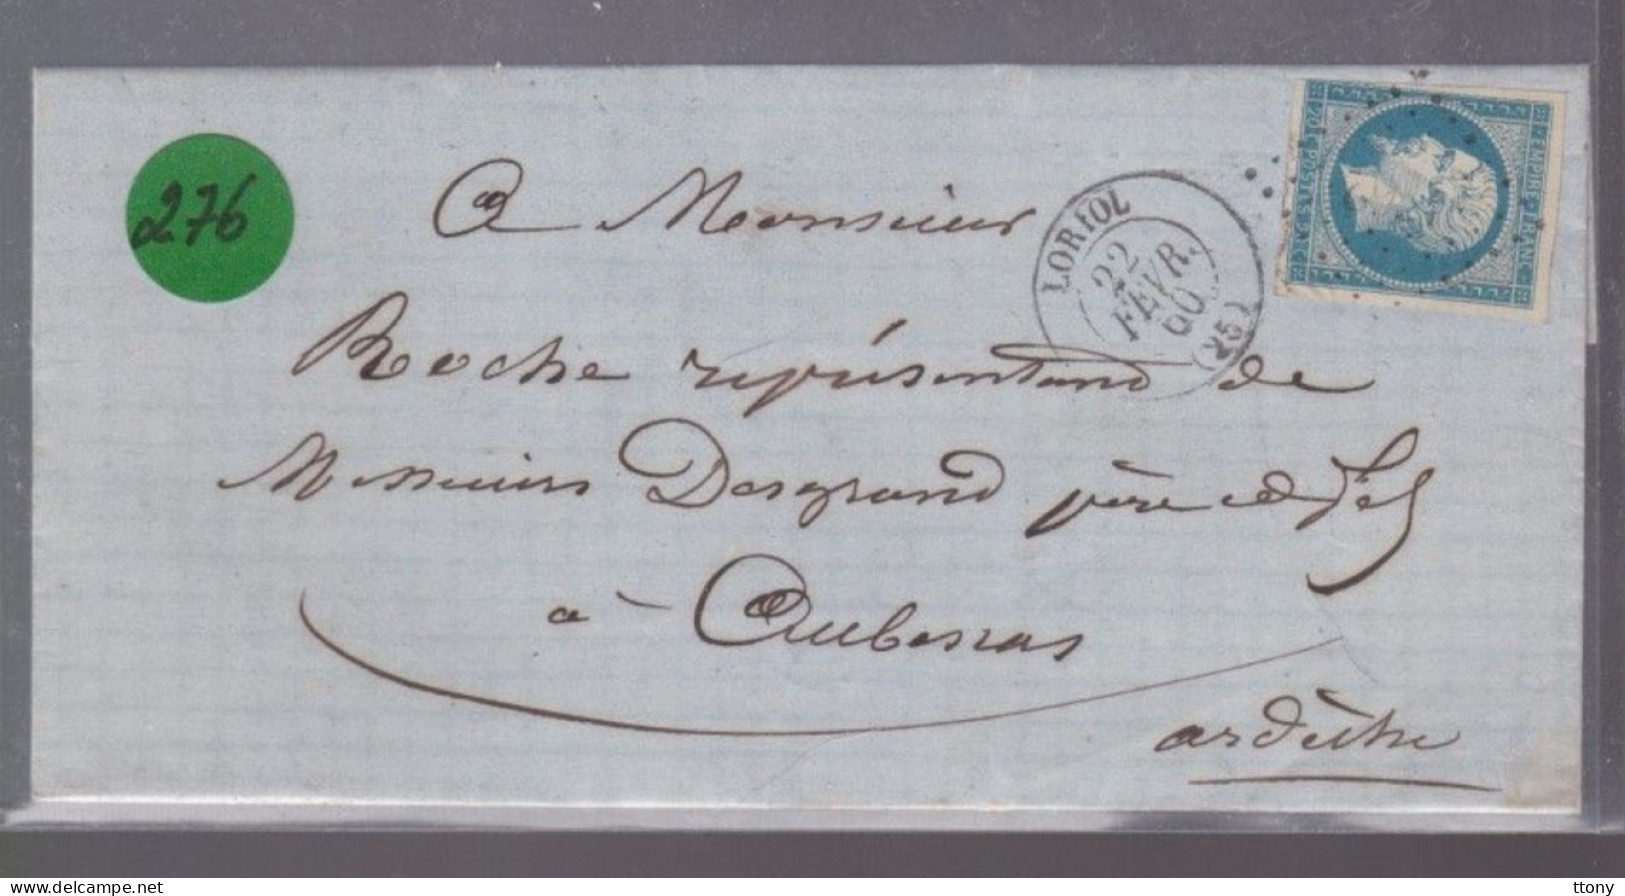 276
A Monsieur
Roche représentand de
Messieurs Desgrand père et fils
à Aubenas
ardèche
LORIOL
22
FEVR.
60
(25)
EMPIRE FRANC
20 c POSTES 20 c
ttony